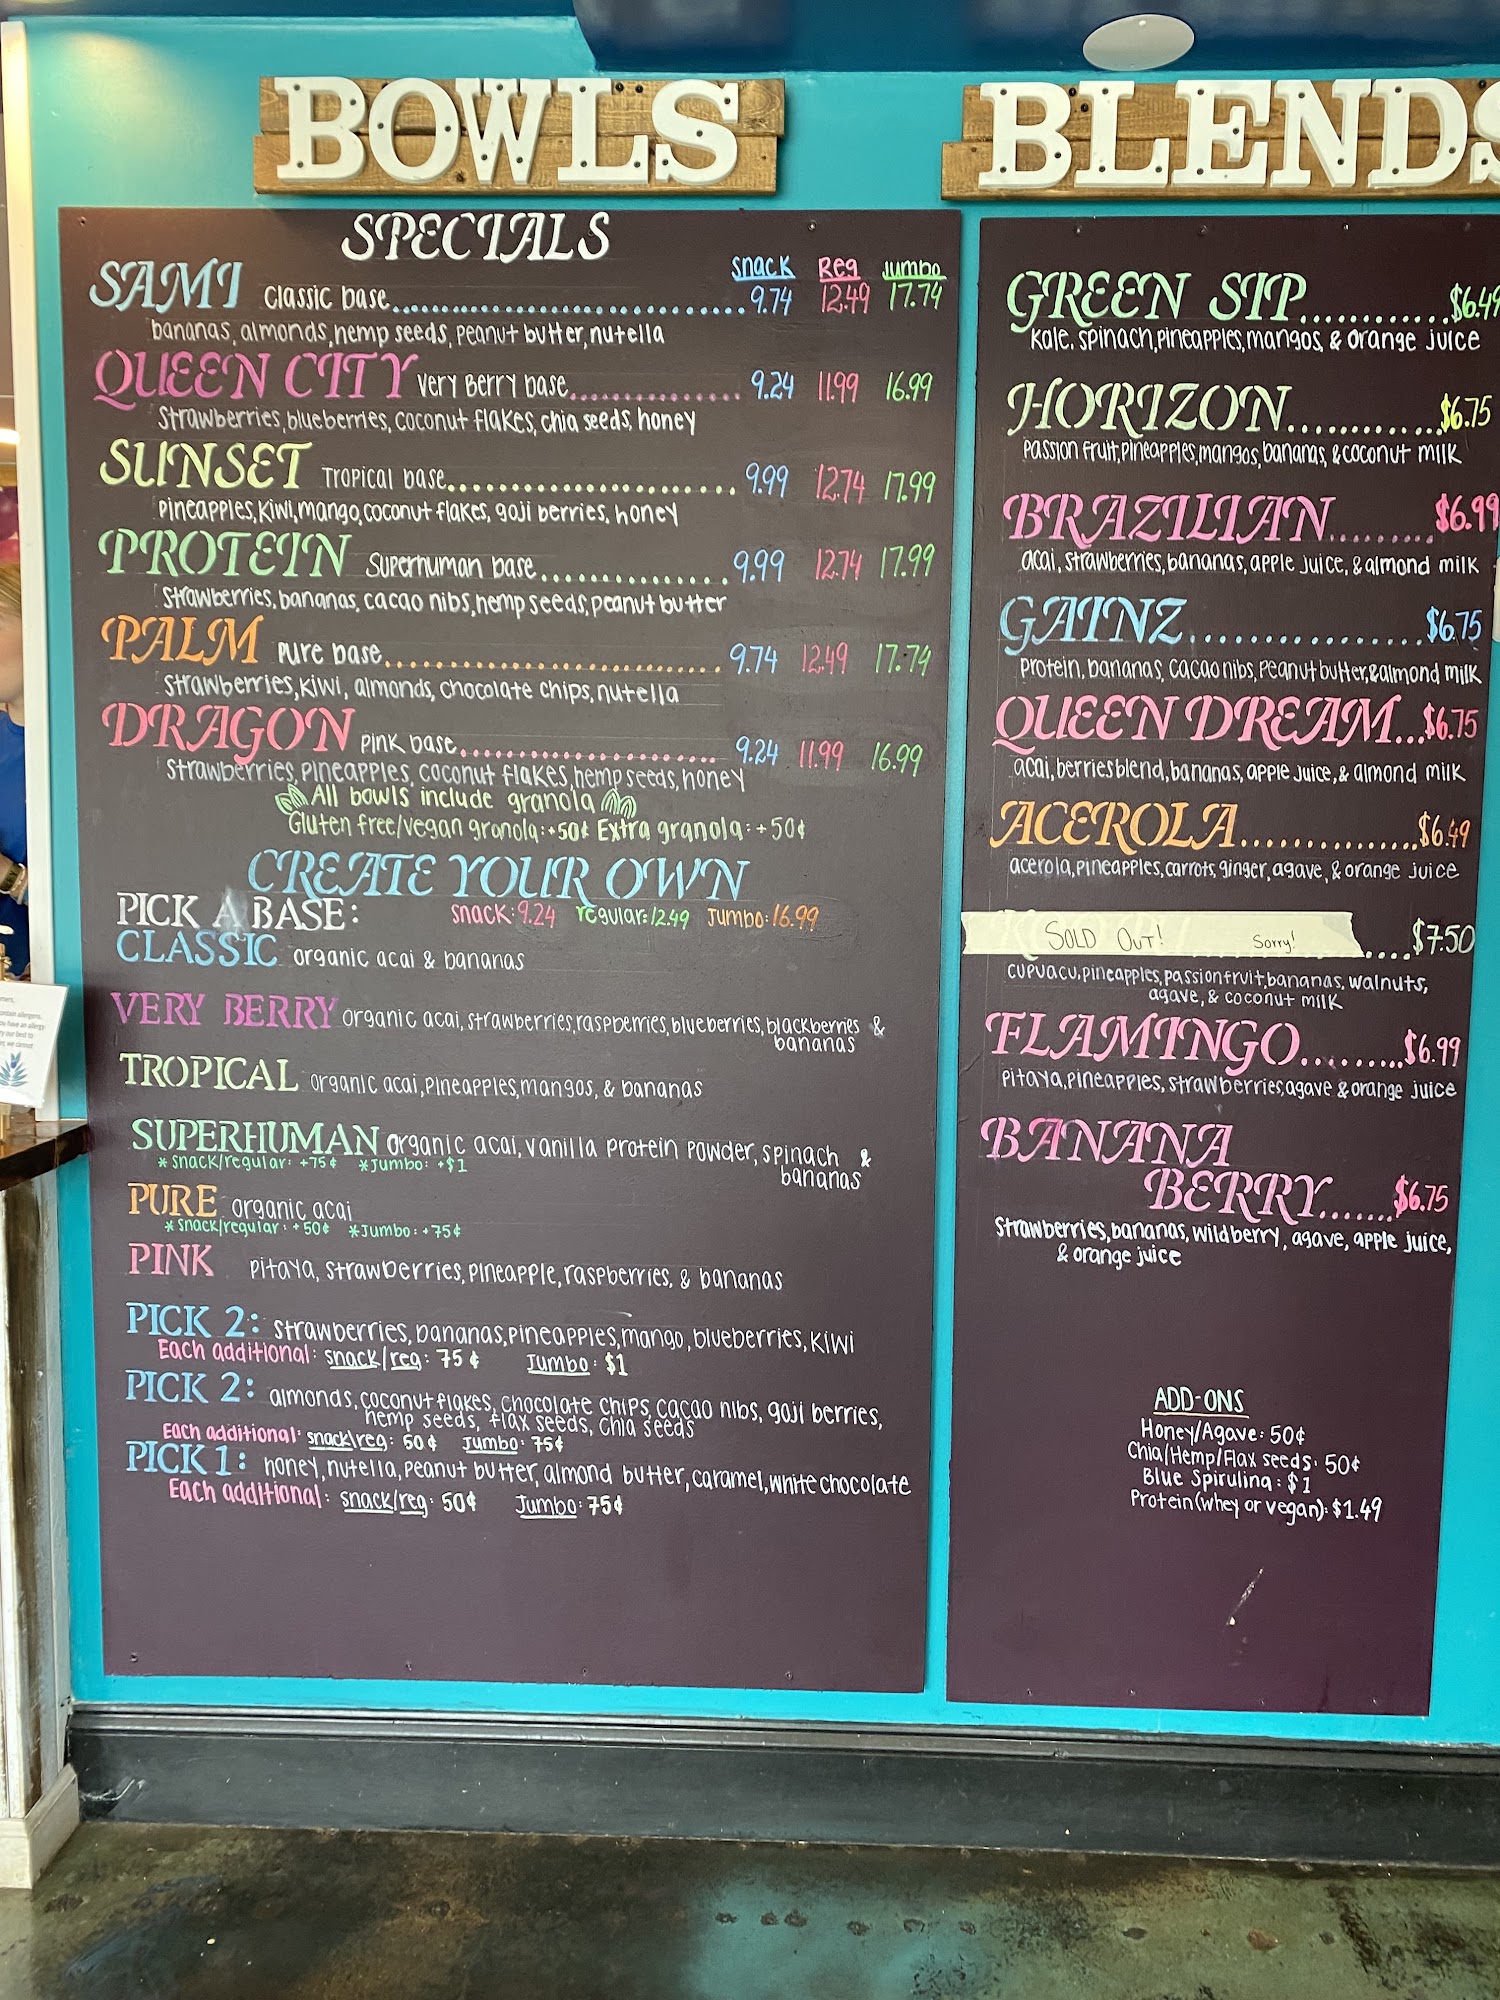 BOWLS
SPECIALS
snack Reg Jumbo
SAMI Classic base 9.74 12.49 17.74
bananas, almonds, hemp seeds, peanut butter, nutella
QUEEN CITY Very Berry base 9.24 11.99 16.99
Strawberries, blueberries, coconut flakes, chia seeds, honey
SUNSET Tropical base 9.99 12.74 17.99
pineapples, kiwi, mango, coconut flakes, goji berries, honey
PROTEIN Superhuman base 9.99 12.74 17.99
Strawberries, bananas, cacao nibs, hemp seeds, peanut butter
PALM Pure base 9.74 12.49 17.74
Strawberries, kiwi, almonds, chocolate chips, nutella
DRAGON Pink base 9.24 11.99 16.99
Strawberries, pineapples, coconut flakes, hemp seeds, honey
All bowls include granola
Gluten free/vegan granola: +50¢ Extra granola: +50¢
CREATE YOUR OWN
PICK A BASE: snack: 9.24 regular: 12.49 Jumbo: 16.99
CLASSIC organic acai & bananas
VERY BERRY organic acai, strawberries, raspberries, blueberries, blackberries &
bananas
TROPICAL organic acai, pineapples, mangos, & bananas
SUPERHUMAN organic acai, vanilla protein powder, spinach &
*snack/regular: +75¢ *Jumbo: +$1 bananas
PURE organic acai
*snack/regular: +50¢ *Jumbo: +75¢
PINK pitaya, strawberries, pineapple, raspberries, & bananas
PICK 2: strawberries, bananas, pineapples, mango, blueberries, kiwi
Each additional: snack/reg: 75¢ Jumbo: $1
PICK 2: almonds, coconut flakes, chocolate chips, cacao nibs, goji berries,
hemp seeds, flax seeds, chia seeds
Each additional: snack/reg: 50¢ Jumbo: 75¢
PICK 1: honey, nutella, peanut butter, almond butter, caramel, white chocolate
Each additional: snack/reg: 50¢ Jumbo: 75¢
BLENDS
GREEN SIP $6.49
kale, spinach, pineapples, mangos, & orange juice
HORIZON $6.75
passion fruit, pineapples, mangos, bananas, & coconut milk
BRAZILIAN $6.99
acai, strawberries, bananas, apple juice, & almond milk
GAINZ $6.75
protein, bananas, cacao nibs, peanut butter, & almond milk
QUEEN DREAM $6.75
acai, berries blend, bananas, apple juice, & almond milk
ACEROLA $6.49
acerola, pineapples, carrots, ginger, agave, & orange juice
SOLD OUT! Sorry! $7.50
cupuacu, pineapples, passionfruit, bananas, walnuts,
agave, & coconut milk
FLAMINGO $6.99
pitaya, pineapples, strawberries, agave & orange juice
BANANA
BERRY $6.75
strawberries, bananas, wildberry, agave, apple juice,
& orange juice
ADD-ONS
Honey/Agave: 50¢
Chia/Hemp/Flax seeds: 50¢
Blue Spirulina: $1
Protein (whey or vegan): $1.49